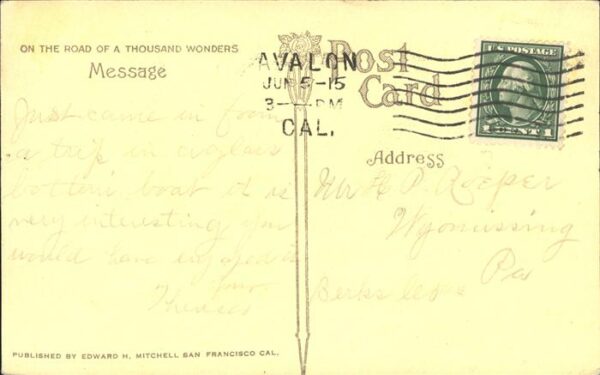 ON THE ROAD OF A THOUSAND WONDERS
Message
Post
Card
AVALON
JUN 5-15
3- PM
CAL.
U.S. POSTAGE
1 CENT 1
Address
Just came in from
a trip in a glass
bottom boat it is
very interesting you
would have enjoyed it
Mr P. Roeper
Wyomissing
Pa
Berks Co
PUBLISHED BY EDWARD H. MITCHELL SAN FRANCISCO CAL.